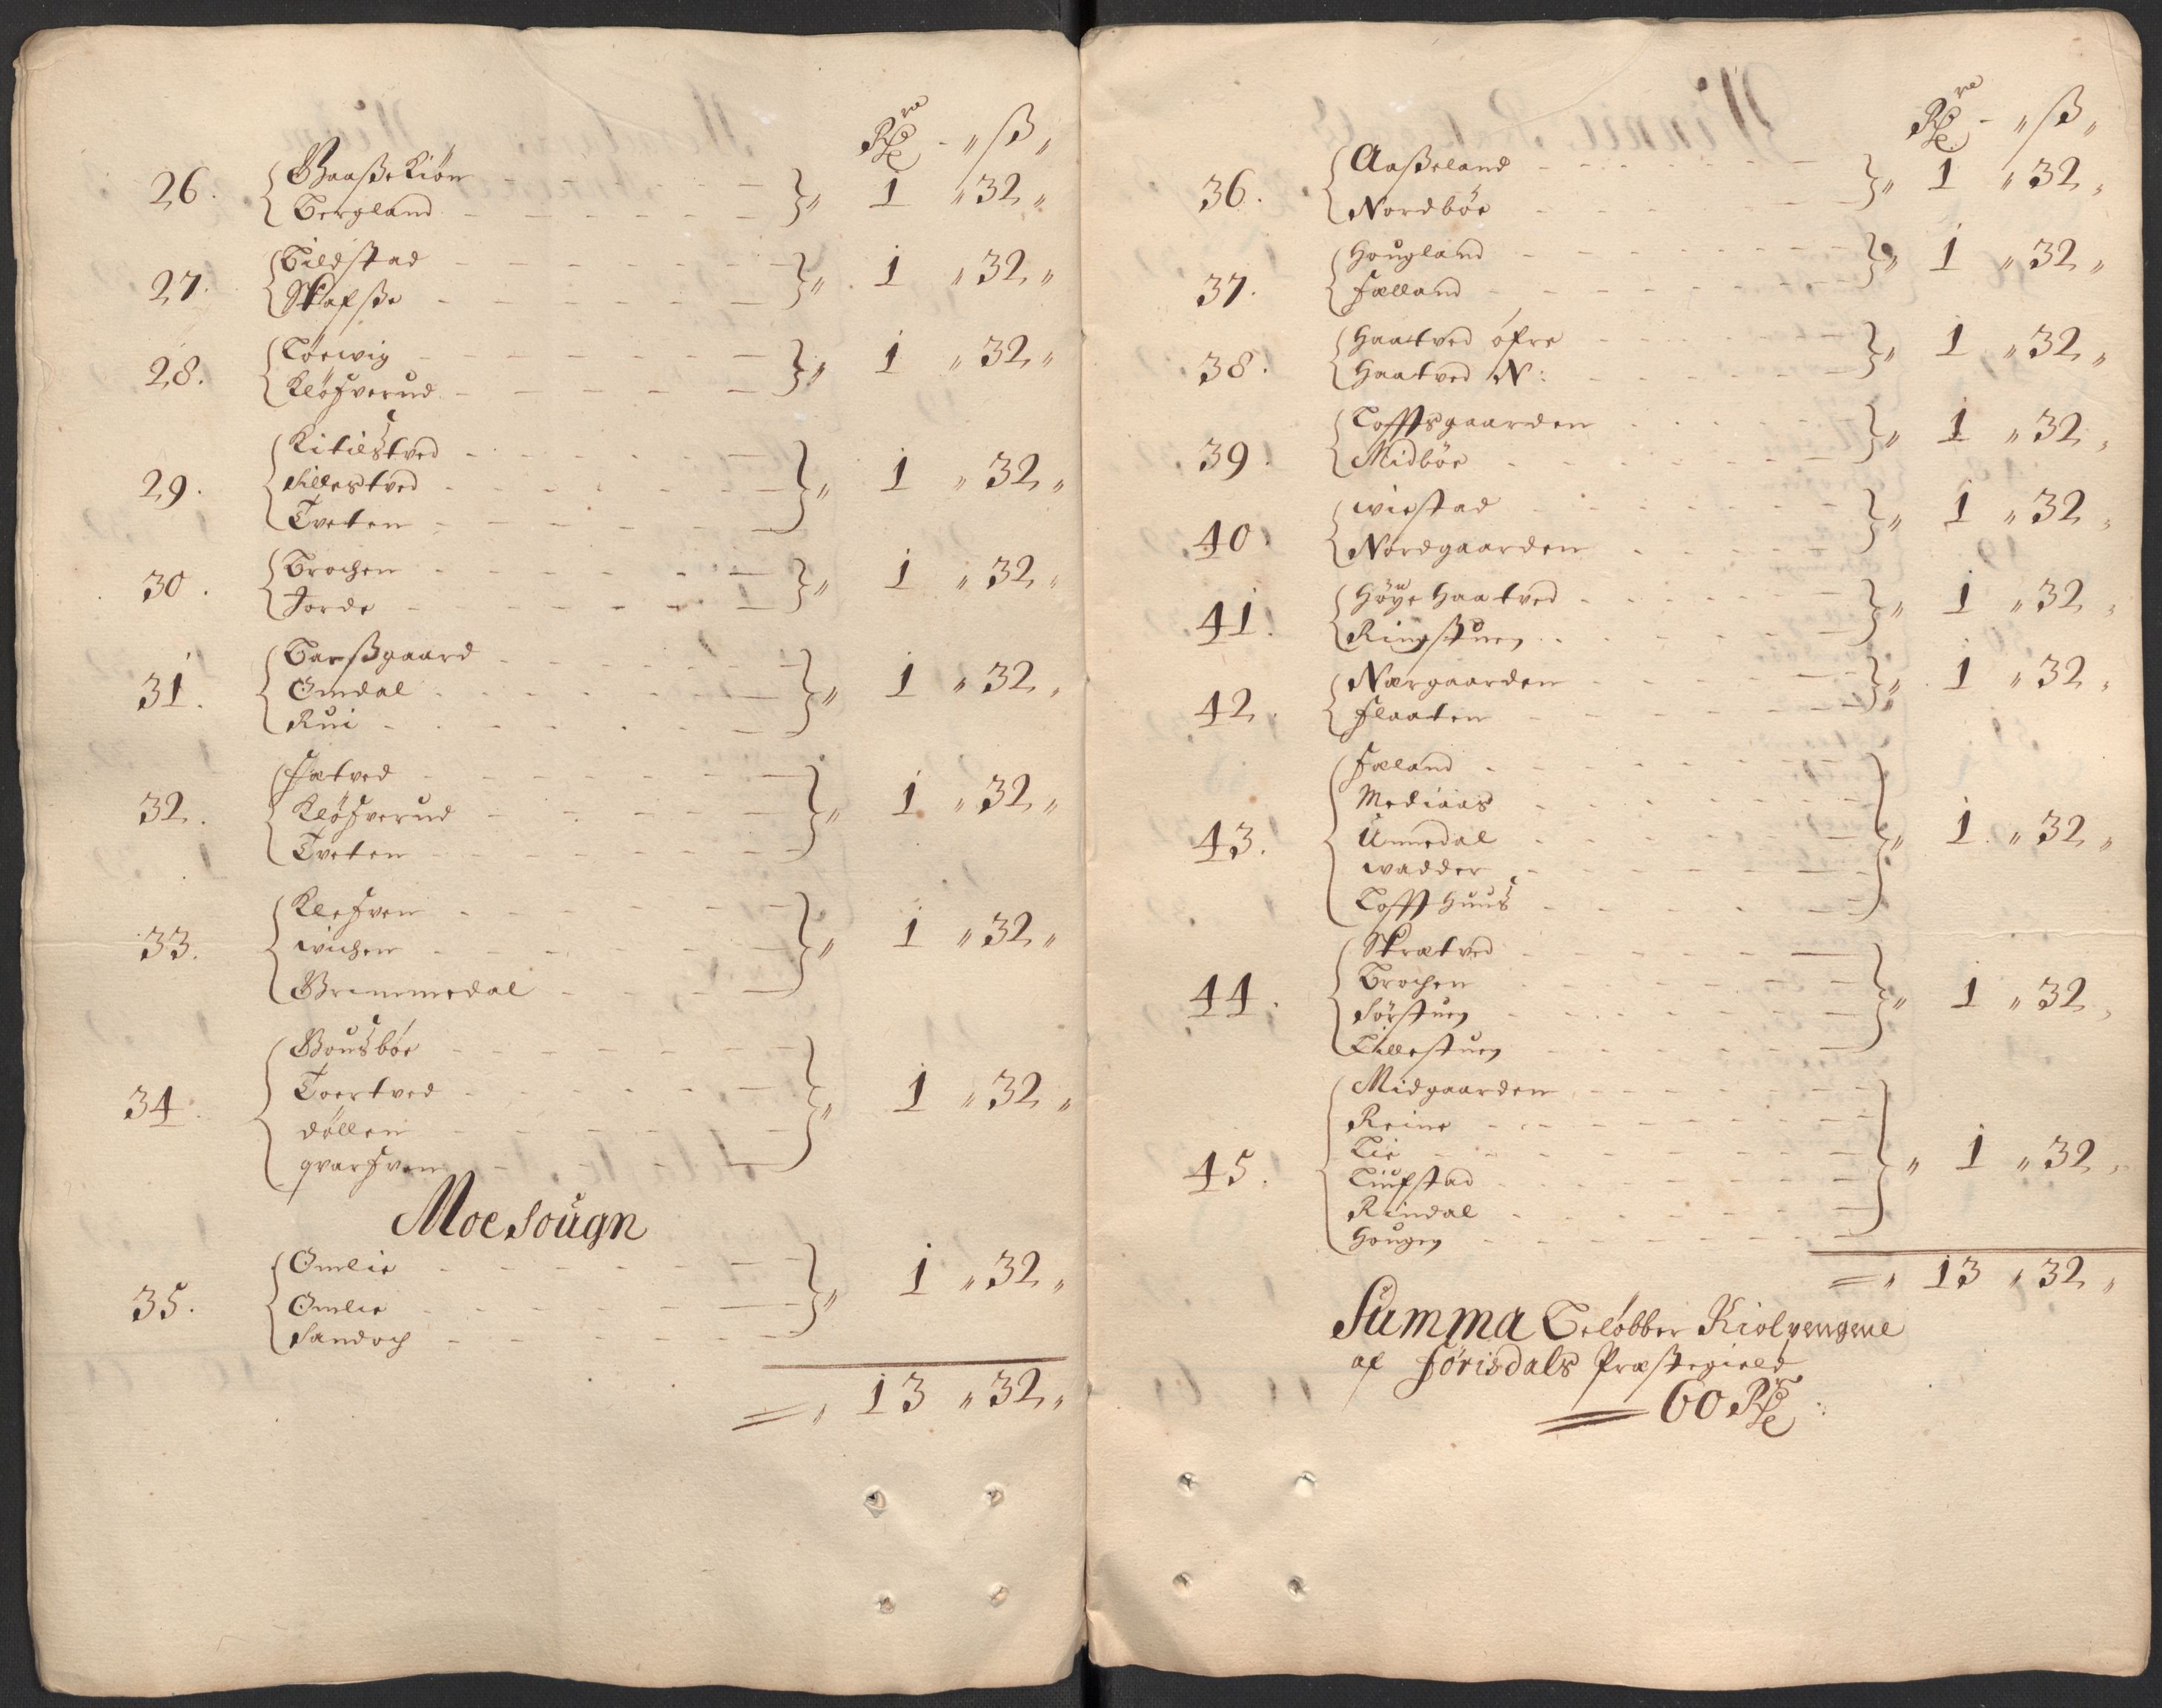 Rdre - " ß "
26. Gaaßekiön
Bergland " 1 " 32 "
27. Bildstad
Skafße " 1 " 32 "
28. Töewig
Kløfverud " 1 " 32 "
29. Kitilstved
Sillestved
Tveten " 1 " 32 "
30. Brochen
Jorde " 1 " 32 "
31. Barßgaard
Omdal
Rui " 1 " 32 "
32. Fætved
Kløfverud
Tveten " 1 " 32 "
33. Klefven
wichen
Grimmedal " 1 " 32 "
34. Gousbøe
Toertved
döllen
qvarfven " 1 " 32 "
Moe Sougn
35. Omlie
Omlie
Sandoch " 1 " 32 "
= " 13 " 32 "
Rdre - " ß "
36. Aaßeland
Nordbøe " 1 " 32 "
37. Hougland
Fælland " 1 " 32 "
38. Haatved øfre
Haatved N: " 1 " 32 "
39. Tofftsgaarden
Midbøe " 1 " 32 "
40. wiestad
Nordgaarden " 1 " 32 "
41. Høye Haatved
Ringstuen " 1 " 32 "
42. Nærgaarden
Flaaten " 1 " 32 "
43. Fæland
Mediaas
Ummedal
wadder
Toffthuus " 1 " 32 "
44. Skrætved
Brochen
Sørstuen
Lillestuen " 1 " 32 "
45. Midgaarden
Reine
Lie
Liufstad
Rindal
Hougen " 1 " 32 "
= " 13 " 32 "
Summa Beløbber Kiolpengene
af Førisdals Præstegield
60 Rdr